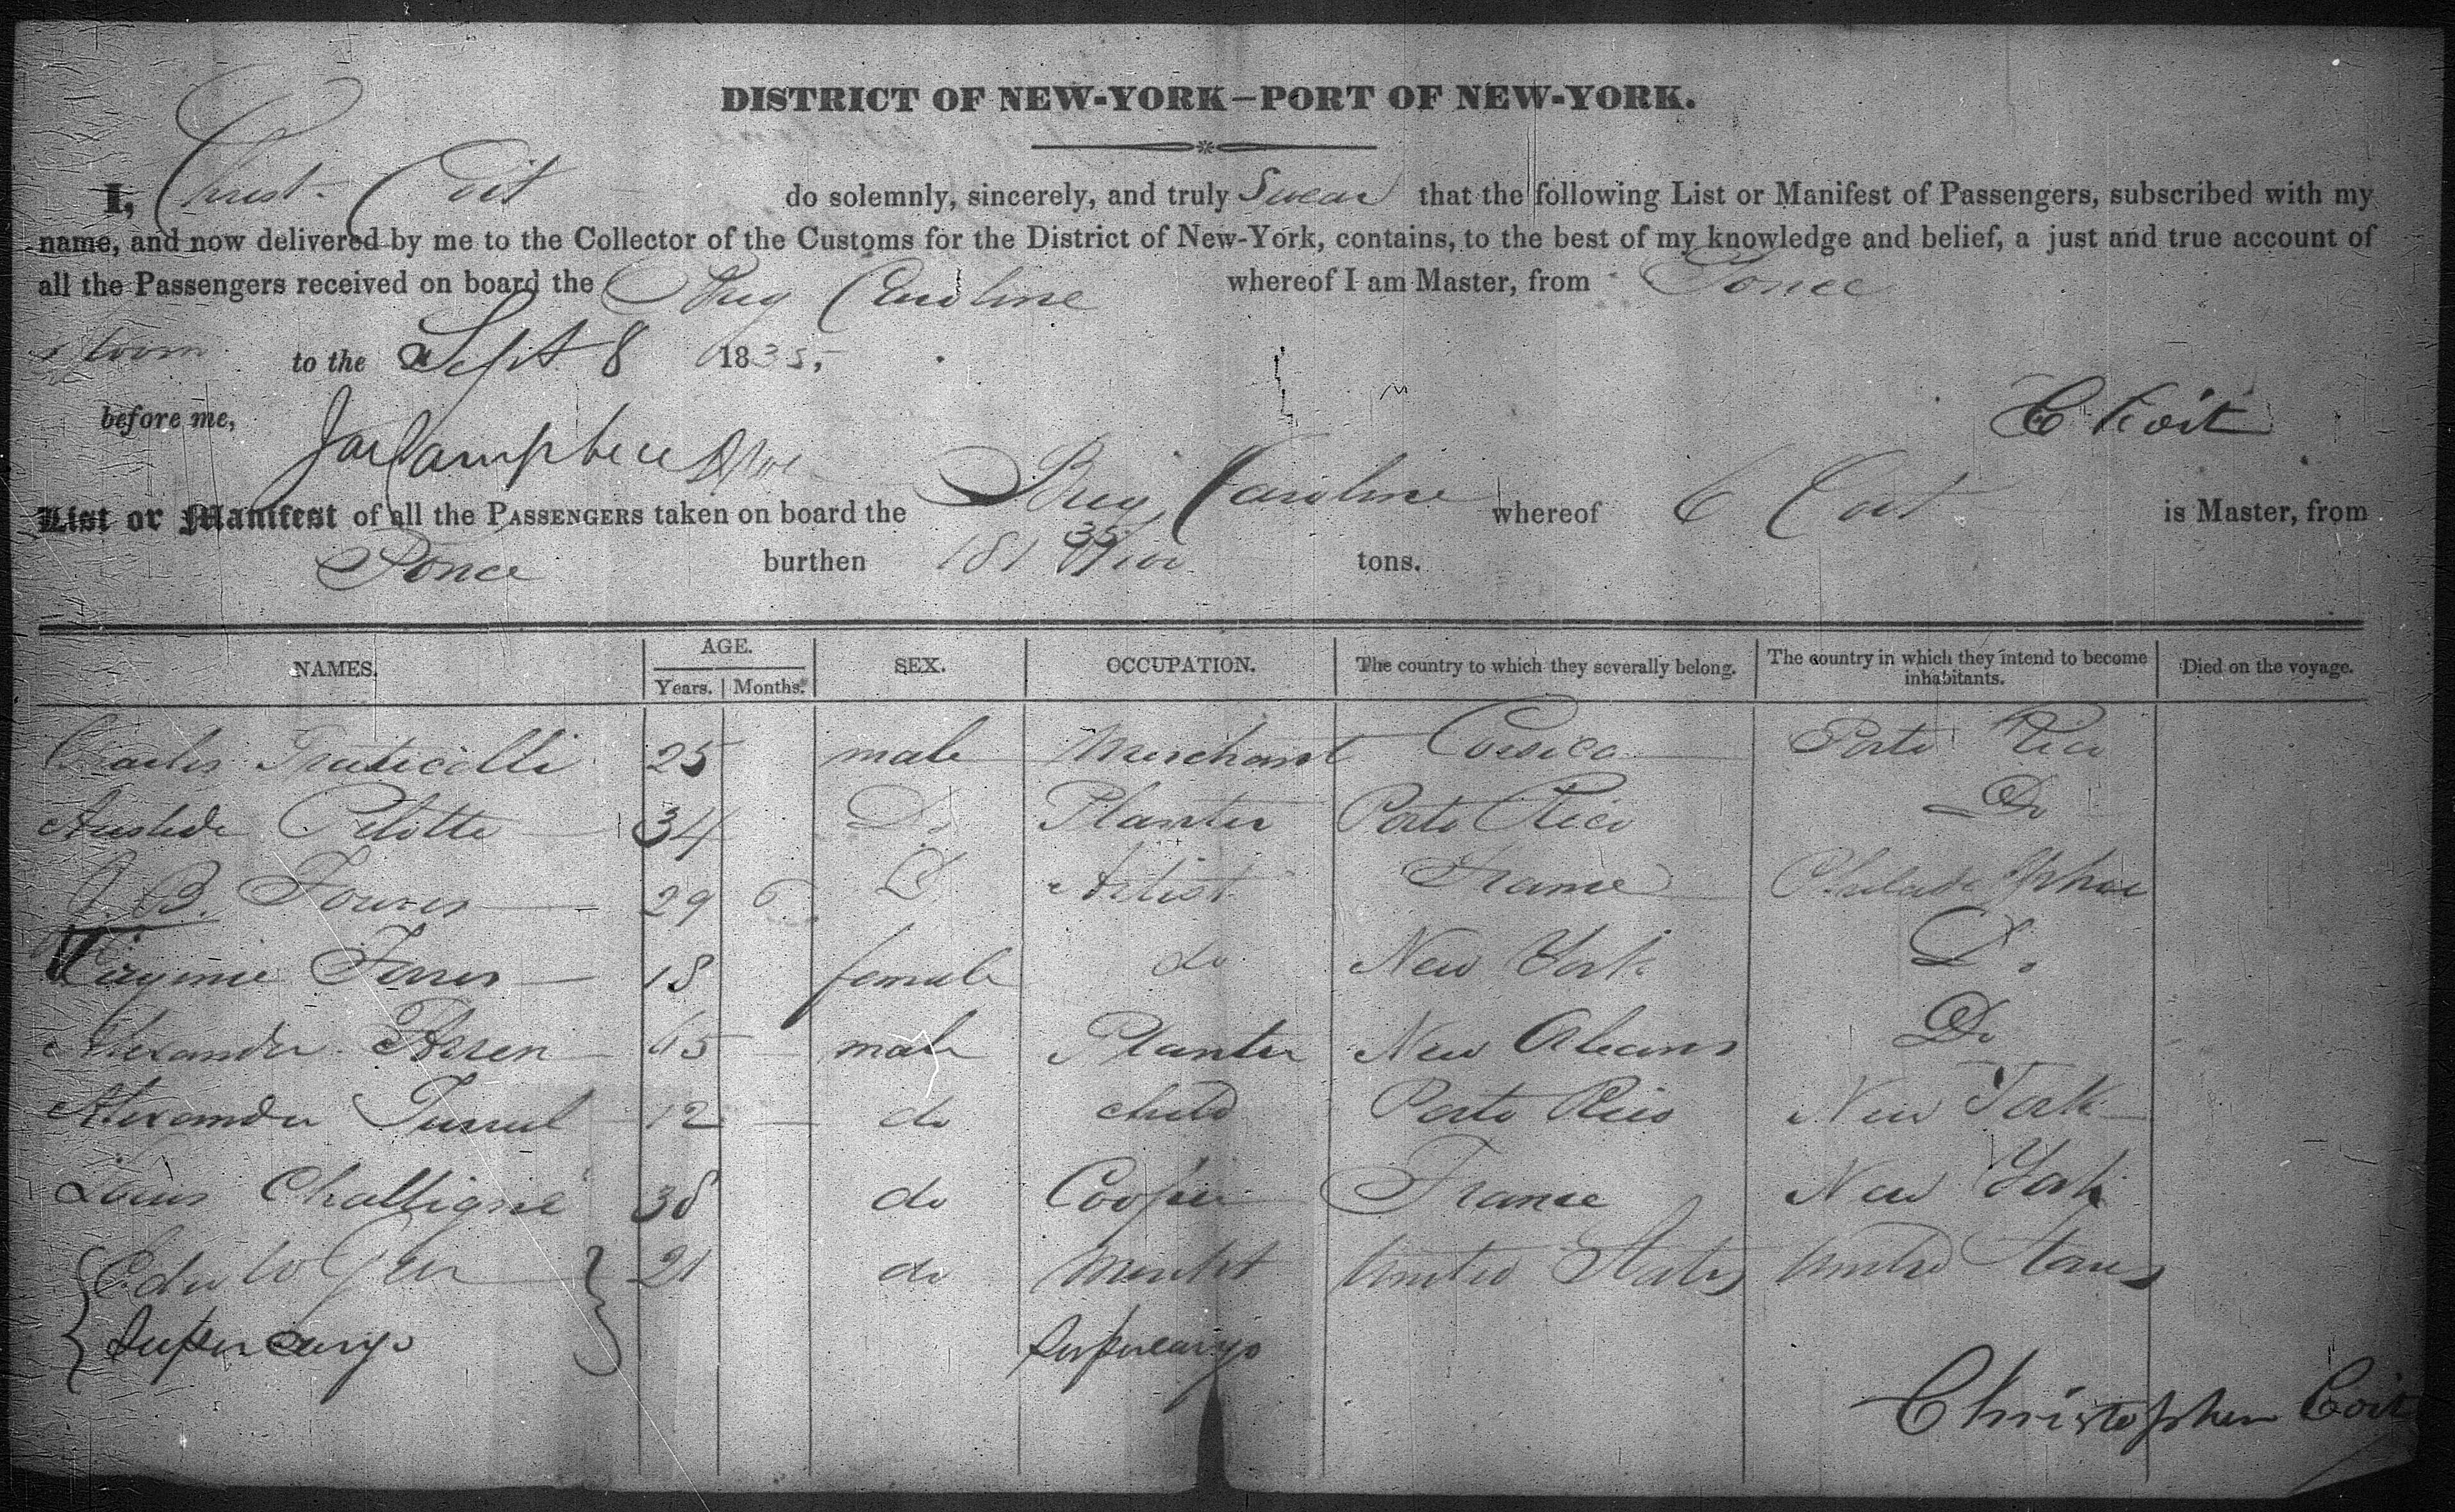 DISTRICT OF NEW-YORK—PORT OF NEW-YORK.
I, Christ. Coit do solemnly, sincerely, and truly Swear that the following List or Manifest of Passengers, subscribed with my
name, and now delivered by me to the Collector of the Customs for the District of New-York, contains, to the best of my knowledge and belief, a just and true account of
all the Passengers received on board the Brig Caroline whereof I am Master, from Ponce
Sworn to the Sept 8 1835,
before me, C Coit
Campbell
List or Manifest of all the PASSENGERS taken on board the Brig Caroline whereof C Coit is Master, from
Ponce burthen 181 35/ tons.
NAMES. AGE. SEX. OCCUPATION. The country to which they severally belong. The country in which they intend to become inhabitants. Died on the voyage.
Years. Months.
Charles Fraticelli 25 male Merchant Corsica Porto Rico
Aristide Pilotte 34 Do Planter Porto Rico Do
J. B. 29 6 D. Artist France Philadelphia
Virginie 18 female do New York Do
Alexander 45 male Planter New Orleans Do
Alexander 12 do child Porto Rico New York
Louis Challigné 38 do Cooper France New York
Edw W Geer 21 do Mercht United States United States
Supercargo Supercargo
Christopher Coit